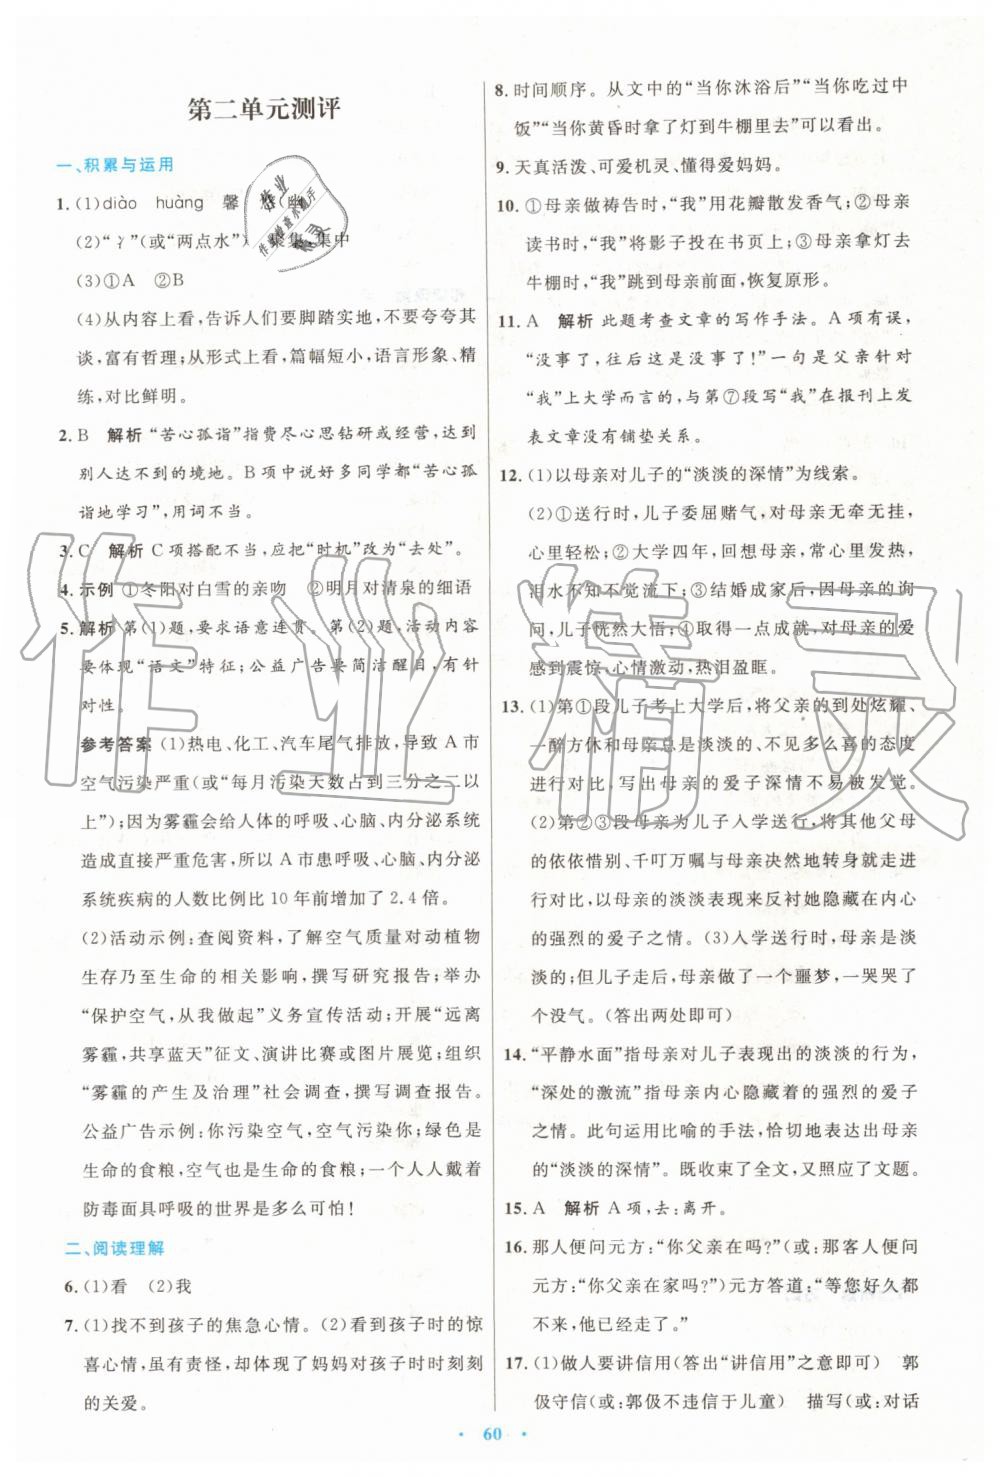 第二单元测评
一、积累与运用
1. (1)diào huàng 馨 (幽
(2)“冫”(或“两点水”) 聚集、集中
(3)①A ②B
(4)从内容上看,告诉人们要脚踏实地,不要夸夸其
谈,富有哲理;从形式上看,篇幅短小,语言形象、精
练,对比鲜明。
2. B 解析 “苦心孤诣”指费尽心思钻研或经营,达到
别人达不到的境地。B项中说好多同学都“苦心孤
诣地学习”,用词不当。
3. C 解析 C项搭配不当,应把“时机”改为“去处”。
4. 示例 ①冬阳对白雪的亲吻 ②明月对清泉的细语
5. 解析 第(1)题,要求语意连贯。第(2)题,活动内容
要体现“语文”特征;公益广告要简洁醒目,有针
对性。
参考答案 (1)热电、化工、汽车尾气排放,导致A市
空气污染严重(或“每月污染天数占到三分之二以
上”);因为雾霾会给人体的呼吸、心脑、内分泌系统
造成直接严重危害,所以A市患呼吸、心脑、内分泌
系统疾病的人数比例比10年前增加了2.4倍。
(2)活动示例:查阅资料,了解空气质量对动植物
生存乃至生命的相关影响,撰写研究报告;举办
“保护空气,从我做起”义务宣传活动;开展“远离
雾霾,共享蓝天”征文、演讲比赛或图片展览;组织
“雾霾的产生及治理”社会调查,撰写调查报告。
公益广告示例:你污染空气,空气污染你;绿色是
生命的食粮,空气也是生命的食粮;一个人人戴着
防毒面具呼吸的世界是多么可怕!
二、阅读理解
6. (1)看 (2)我
7. (1)找不到孩子的焦急心情。(2)看到孩子时的惊
喜心情,虽有责怪,却体现了妈妈对孩子时时刻刻
的关爱。
8. 时间顺序。从文中的“当你沐浴后”“当你吃过中
饭”“当你黄昏时拿了灯到牛棚里去”可以看出。
9. 天真活泼、可爱机灵、懂得爱妈妈。
10. ①母亲做祷告时,“我”用花瓣散发香气;②母亲
读书时,“我”将影子投在书页上;③母亲拿灯去
牛棚时,“我”跳到母亲前面,恢复原形。
11. A 解析 此题考查文章的写作手法。A项有误,
“没事了,往后这是没事了!”一句是父亲针对
“我”上大学而言的,与第⑦段写“我”在报刊上发
表文章没有铺垫关系。
12. (1)以母亲对儿子的“淡淡的深情”为线索。
(2)①送行时,儿子委屈赌气,对母亲无牵无挂,
心里轻松;②大学四年,回想母亲,常心里发热,
泪水不知不觉流下;③结婚成家后,因母亲的询
问,儿子恍然大悟;④取得一点成就,对母亲的爱
感到震惊,心情激动,热泪盈眶。
13. (1)第①段儿子考上大学后,将父亲的到处炫耀、
一醉方休和母亲总是淡淡的、不见多么喜的态度
进行对比,写出母亲的爱子深情不易被发觉。
(2)第②③段母亲为儿子入学送行,将其他父母
的依依惜别、千叮万嘱与母亲决然地转身就走进
行对比,以母亲的淡淡表现来反衬她隐藏在内心
的强烈的爱子之情。(3)入学送行时,母亲是淡
淡的;但儿子走后,母亲做了一个噩梦,一哭哭了
个没气。(答出两处即可)
14. “平静水面”指母亲对儿子表现出的淡淡的行为,
“深处的激流”指母亲内心隐藏着的强烈的爱子
之情。此句运用比喻的手法,恰切地表达出母亲
的“淡淡的深情”。既收束了全文,又照应了文题。
15. A 解析 A项,去:离开。
16. 那人便问元方:“你父亲在吗?”(或:那客人便问
元方:“你父亲在家吗?”)元方答道:“等您好久都
不来,他已经走了。”
17. (1)做人要讲信用(答出“讲信用”之意即可) 郭
伋守信(或:郭伋不违信于儿童) 描写(或:对话
60
作业精灵